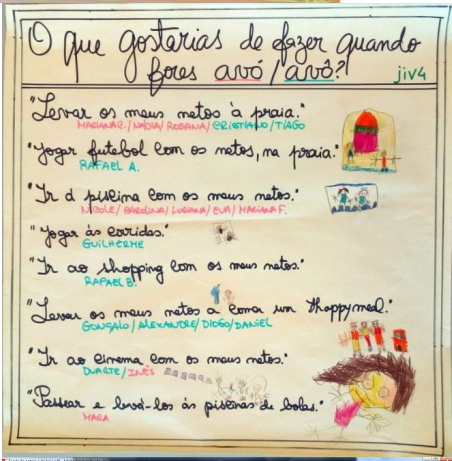 O que gostarias de fazer quando
fores avó/avô?
jiv4
"Levar os meus netos à praia."
MARIANA C. / NÁDIA / ROSANA / CRISTIANO / TIAGO
"Jogar futebol com os netos, na praia."
RAFAEL A.
"Ir á piscina com os meus netos."
NICOLE / CAROLINA / LUANA / EVA / MARIANA F.
"Jogar às corridas."
GUILHERME
"Ir ao shopping com os meus netos."
RAFAEL B.
"Levar os meus netos a comer um Happymeal."
GONÇALO / ALEXANDRE / DIOGO / DANIEL
"Ir ao cinema com os meus netos."
DUARTE / INÊS
"Passear e levá-los às piscinas de bolas."
MARA